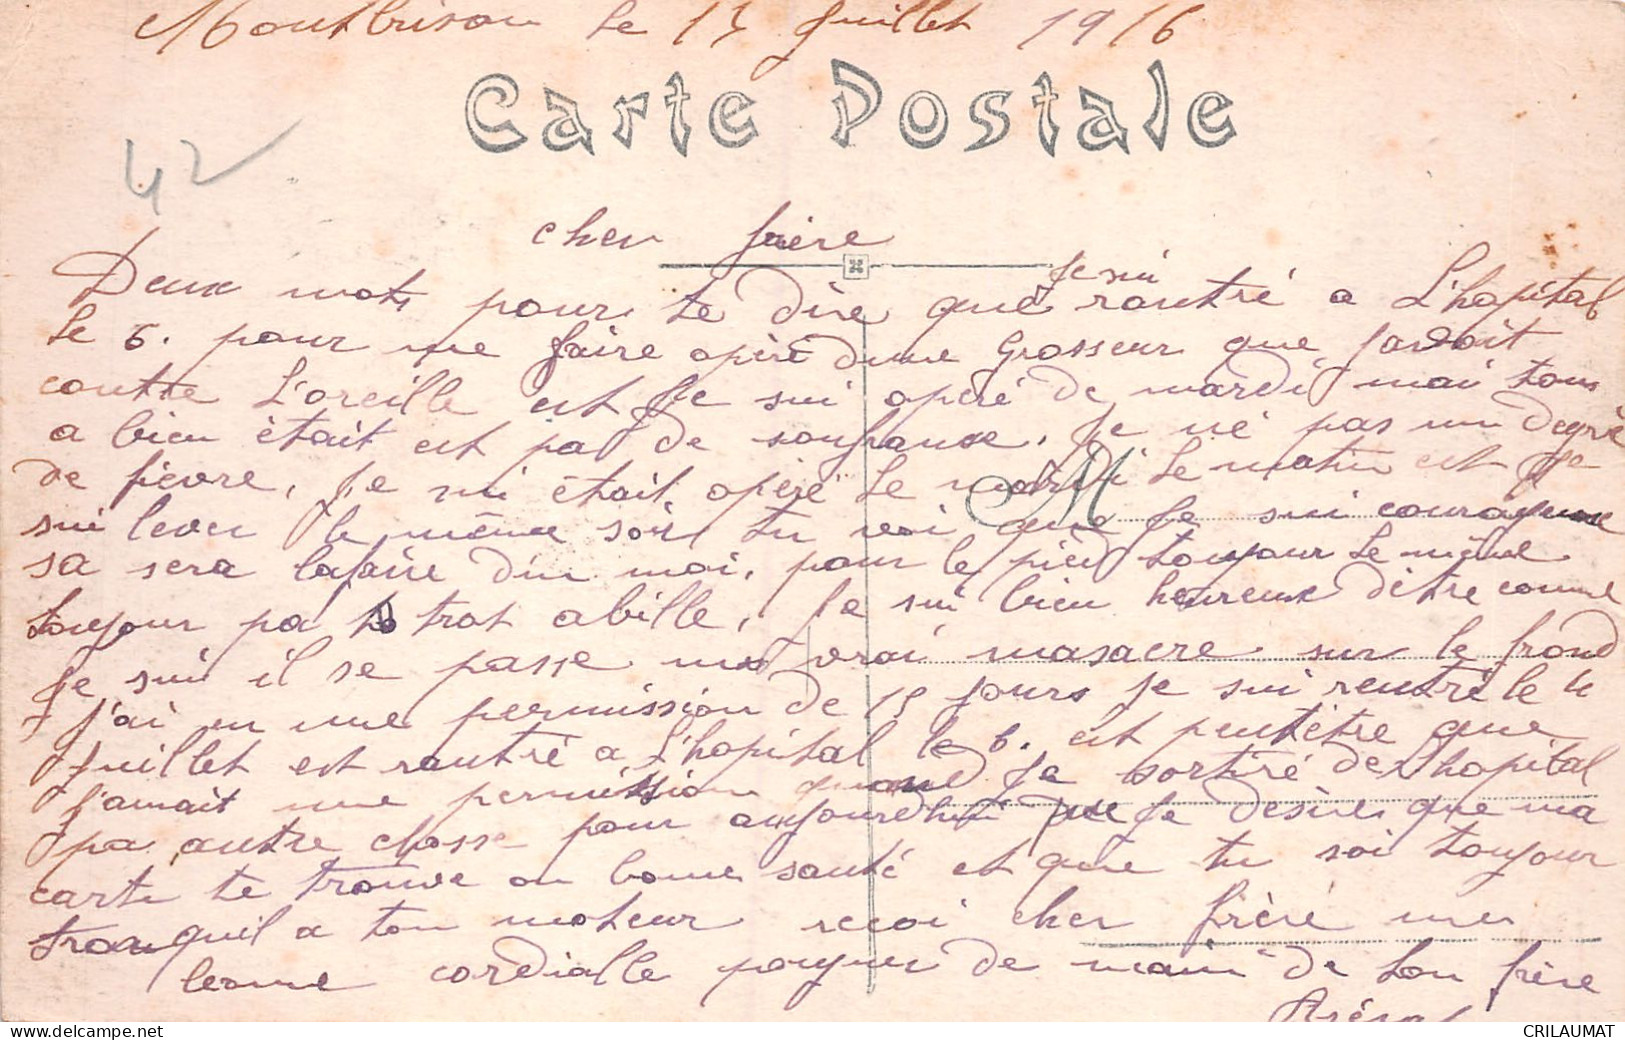 Montbrison le 13 juillet 1916
Carte Postale
42
cher frère
Deux mots pour te dire que je sui rantré a L'hopital
le 6. pour me faire opéré dune Grosseur que javait
contre L'oreille est Je sui opéré de mardi mai tous
a bien était est pa de soufranse. Je né pas un degré
de fièvre, Je sui était opéré Le mardi Le matin est Je
sui lever le même soir tu voi que Je sui courageuse
sa sera lafaire din moi. pour le pied toujour Le même
toujour pa trot abille, Je sui bien heureux dètre comme
Je sui il se passe un vrai masacre sur le frond
J'ai eu une permission de 15 jours Je sui rentré le 4
Juillet est rantré a L'hopital le 6. est peutètre que
J'amait une permission quand Je sortiré de Lhopital
pa autre chosse pour aujourdhui que Je desire que ma
carte te trouve en bonne santé et que tu soi toujour
tranquil a ton moteur recoi cher frère une
bonne cordialle poigner de main de ton frère
M
CRILAUMAT